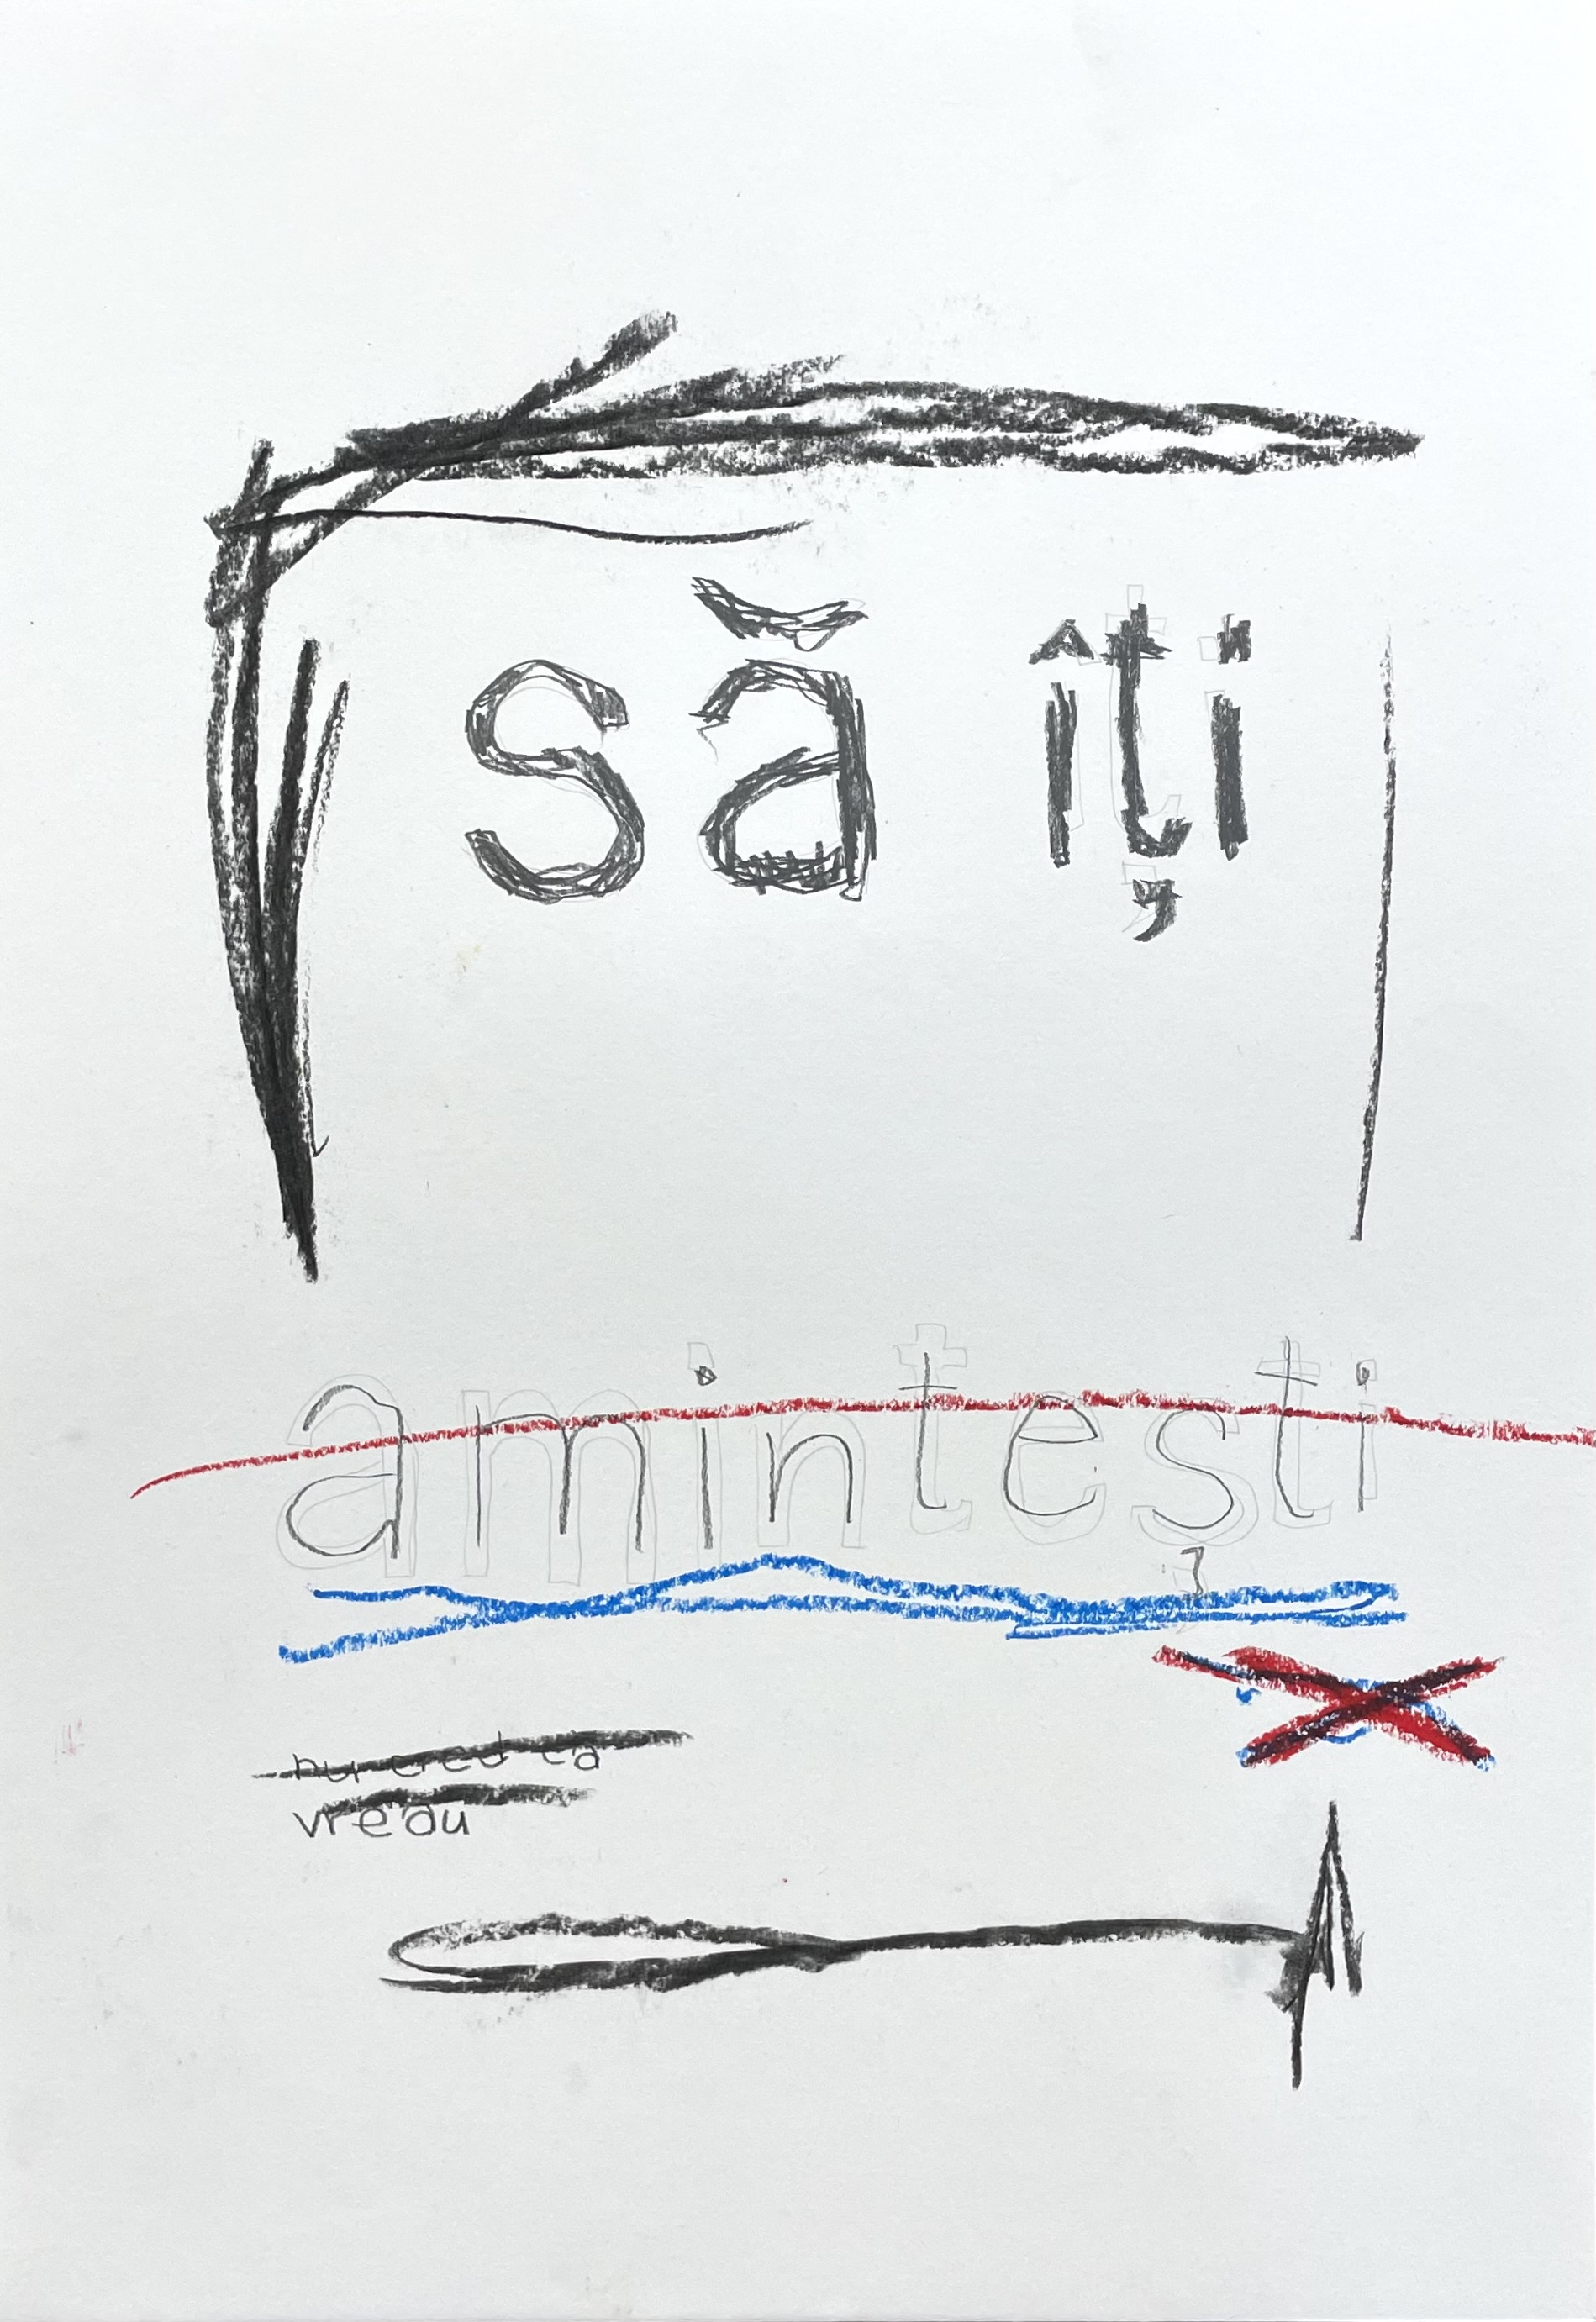 să îți
amintești
nu cred că
vreau